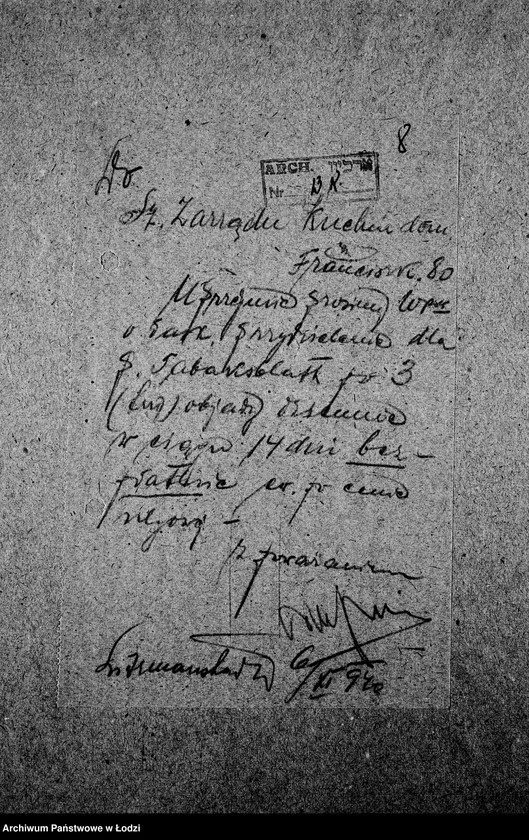 8
Do
ARCH. ארכיוו
Nr
Sz. Zarządu Kuchni dom.
Franciszk. 80
Uprzejmie proszę WPana
o łask. przydzielenie dla
p. Tabaksblatt po 3
(trzy) obiady dziennie
w ciągu 14 dni bez-
płatnie po cenie
z poważaniem
Litzmannstadt 6/XI 940
Archiwum Państwowe w Łodzi